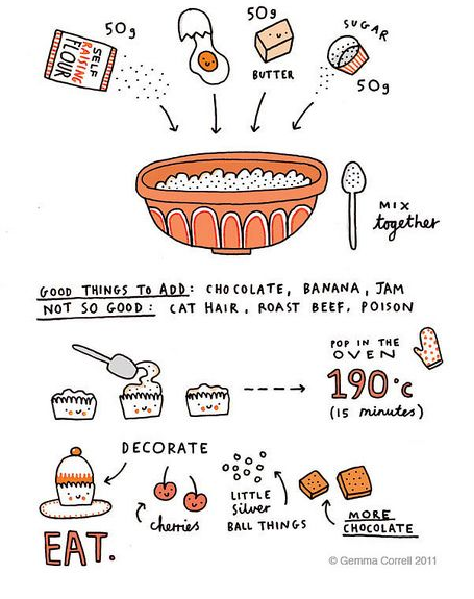 50g
SELF
RAISING
FLOUR
50g
BUTTER
SUGAR
50g
MIX
together
GOOD THINGS TO ADD: CHOCOLATE, BANANA, JAM
NOT SO GOOD: CAT HAIR, ROAST BEEF, POISON
POP IN THE
OVEN
190°C
(15 minutes)
DECORATE
cherries
LITTLE
silver
BALL THINGS
MORE
CHOCOLATE
EAT.
© Gemma Correll 2011